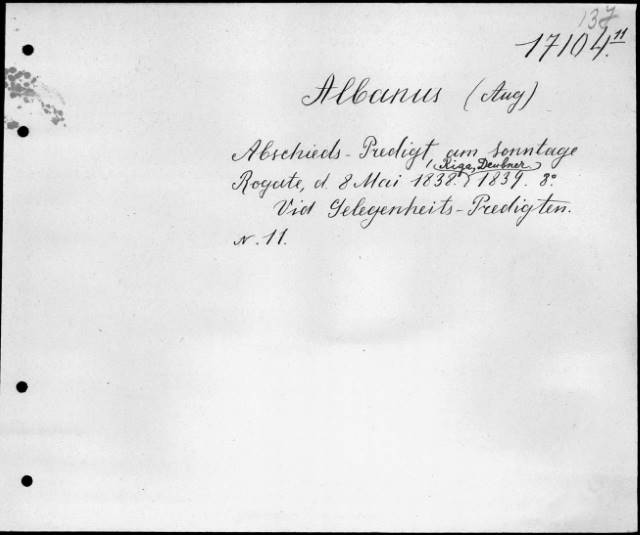 137
17104.11
Albanus (Aug)
Abschieds-Predigt am Sonntage
(Riga, Deubner)
Rogate, d. 8 Mai 1838. 1839. 8°
Vid Gelegenheits-Predigten.
N. 11.